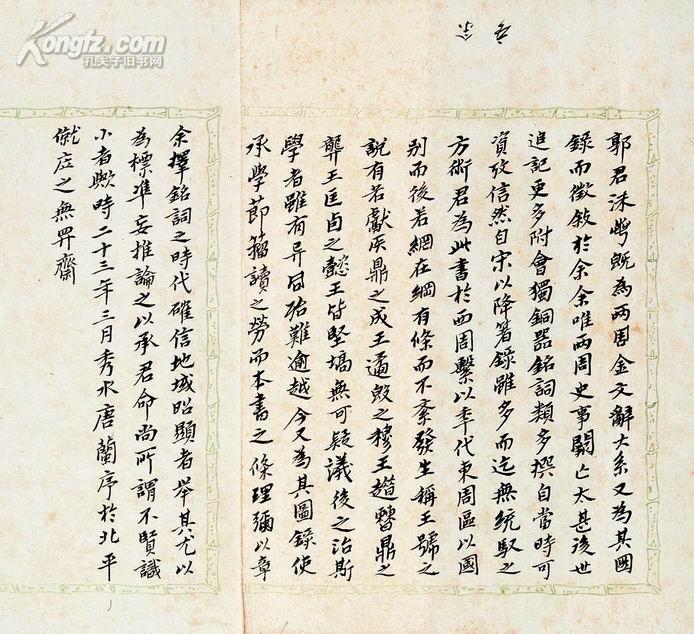 郭君沬若既為兩周金文辭大系又為其圖
錄而徵敘於余余唯兩周史事闕亡太甚後世
追記更多附會獨銅器銘詞類多撰自當時可
資攷信然自宋以降箸錄雖多而迄無統馭之
方術君為此書於西周繫以年代東周區以國
別而後若網在綱有條而不紊發生稱王號之
說有若獻侯鼎之成王遹𣪘之穆王趞曹鼎之
龔王匡卣之懿王皆堅塙無可疑議後之治斯
學者雖有异同殆難逾越今又為其圖錄使
承學節籀讀之勞而本書之條理彌以章
余擇銘詞之時代確信地域昭顯者舉其尤以
為標準妄推論之以承君命尚所謂不賢識
小者歟時二十三年三月秀水唐蘭序於北平
僦居之無斁齋
Kongfz.com
孔夫子旧书网